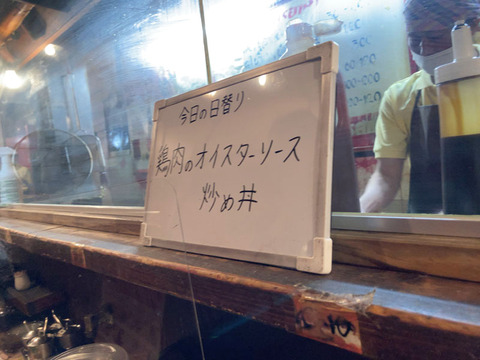 今日の日替り
鶏肉のオイスターソース
炒め丼